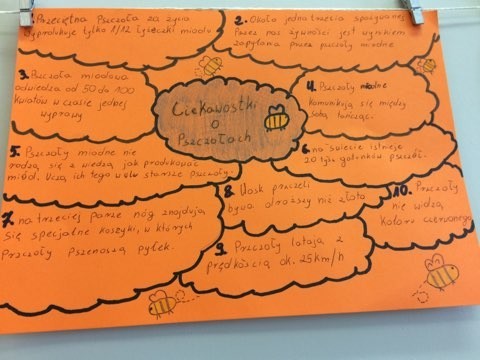 1. Przeciętna Pszczoła za życia
wyprodukuje tylko 1/12 łyżeczki miodu
2. Około jedna trzecia spożywanej
Przez nas żywności jest wynikiem
zapylania przez pszczoły miodne
3. Pszczoła miodowa
odwiedza od 50 do 100
kwiatów w czasie jednej
wyprawy
Ciekawostki
o
Pszczołach
4. Pszczoły miodne
komunikują się między
sobą tańcząc.
5. Pszczoły miodne nie
rodzą się z wiedzą jak produkować
miód. Uczą ich tego w ulu starsze pszczoły.
6. na świecie istnieje
20 tyś gatunków pszczół.
7. na trzeciej parze nóg znajdują
się specjalne koszyki, w których
Pszczoły Przenoszą pyłek.
8. Wosk pszczeli
bywa droższy niż złoto
9. Pszczoły latają z
prędkością ok. 25km/h
10. Pszczoły
nie widzą
koloru czerwonego